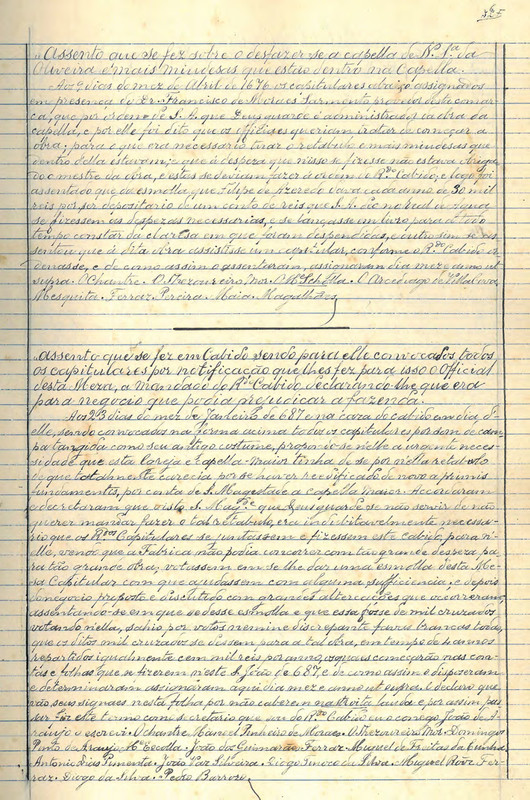 Assento que se fez sobre o desfazer-se a capella de N.ª S.ª da
Oliveira e mais miudesas que estão dentro na Capella.
Aos 9 dias do mez de Abril de 1676 os capitulares abaixo assignados
em presença do Dr. Francisco de Moraes Sarmento desta comar-
ca, que por ordem de S. A. que Deus guarde é administrador da obra da
capella, e por elle foi dito que os officiaes queriam tratar de começar a
obra; para o que era necessario tirar o retabulo e mais miudesas que
dentro della estavam; e que á despeza que nisso se fizesse não estava obriga-
do o mestre da obra, e estas se deviam fazer á ordem do R.do Cabido; e logo foi
assentado que da esmolla que Filipe de Azevedo dava cada anno de 30 mil
reis por ser depositario de um conto de reis que S. A. deu no real de agua
se fizessem as despezas necessarias, e se lançasse em livro para a todo
tempo constar da clareza em que foram despendidas, e outro sim se as-
sentou que á dita obra assistisse um capitular, conforme o R.do Cabido or-
denasse, e de como assim o assentaram, assignaram dia mez e anno ut
supra. O Chantre. O Thezoureiro Mor. O M.e Schola. O Arcediago de Villa Cova.
Mesquita. Ferraz. Pereira. Maia. Magalhães
Assento que se fez em Cabido sendo para elle convocados todos
os capitulares por notificação que lhes fez para isso o Official
desta Meza, a mandado do R.do Cabido declarando-lhe que era
para negocio que podia prejudicar a fazenda.
Aos 23 dias do mez de Janeiro de 687 e na caza do cabido em dia d'-
elle, sendo convocados na forma acima todos os capitulares por som de cam-
pa tangida como seu antigo costume, propoz-se nelle a urgente neces-
sidade que esta Igreja e Capella-maior tinha de se pôr nella retabolo
de que totalmente carecia por se haver reedificado de novo a primis
fundamentis, por conta de S. Magestade a capella maior. Accordaram
e decretaram que visto S. Mag.de que Deus guarde se não servir de não
querer mandar fazer o tal retabulo, era indubitavelmente necessa-
rio que os R.dos Capitulares se juntassem e fizessem este cabido, para n'-
elle, vendo que a Fabrica não podia concorrer com tão grande despeza pa-
ra tão grande obra, votassem em se lhe dar uma esmolla desta Me-
sa Capitular com que a ajudassem com alguma sufficiencia, e depois
do negocio proposto e discutido com grandes altercações que occorreram,
assentando-se em que se désse esmolla e que essa fosse de mil cruzados
votando nella, sahio por votos nemine discrepante favas brancas todas,
que os ditos mil cruzados se dessem para a tal obra, em tempo de 4 annos
repartidos igualmente cem mil reis por anno, os quaes começarão nas con-
tas e folhas que se fizerem n'este S. João de 687, e de como assim o disposeram
e determinaram assignaram aqui dia mez e anno ut supra. E declaro que
vão seus signaes nesta folha por não caberem na atraz lauda e por assim pas-
sar fiz este termo como secretario que sou do R.do Cabido eu o conego João de A-
raujo o escrevi. O Chantre Manoel Pinheiro de Moraes. O Thezoureiro Mor. Domingos
Pinto de Araujo. M.e Escolla. João dos Guimarães Ferraz. Miguel de Freitas da Cunha.
Antonio Dias Pimenta. João Vaz Silveira. Diogo da Silva. Miguel Roiz Fer-
raz. Diogo da Silva. Pedro Barroso